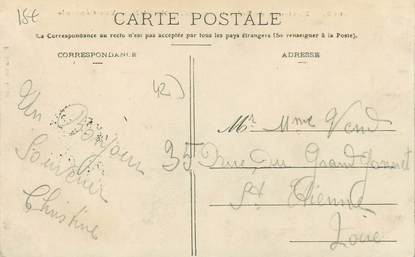 15€
CARTE POSTALE
La Correspondance au recto n'est pas acceptée par tous les pays étrangers (Se renseigner à la Poste).
CORRESPONDANCE
ADRESSE
42)
Un Bonjour
Souvenir
Christine
Mr Mme
35 rue du Grand Gonnet
St Etienne
Loire